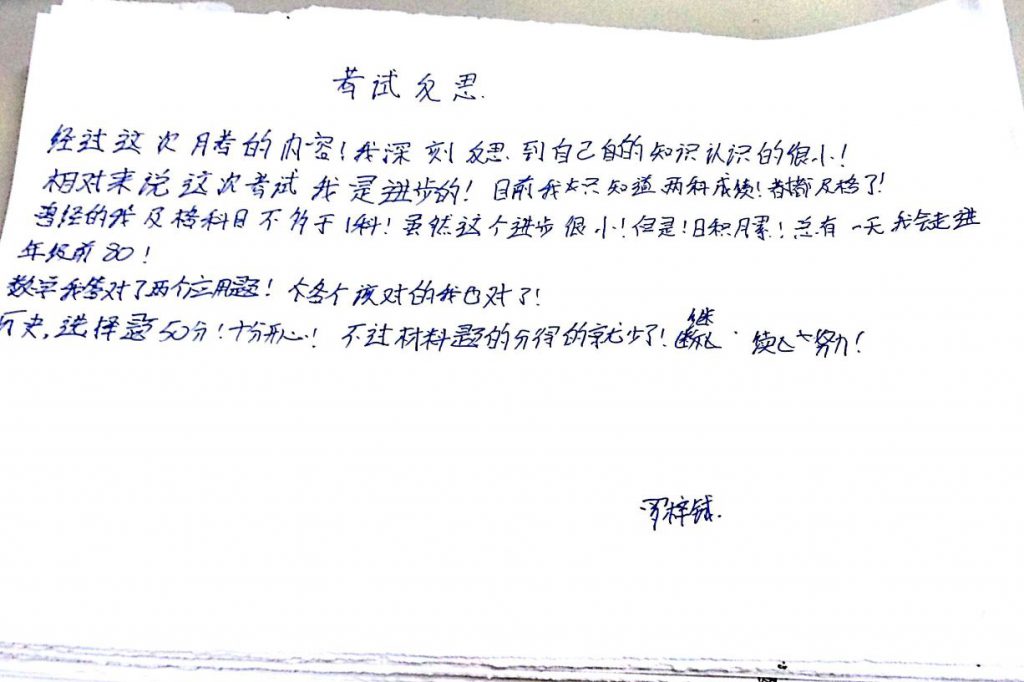 考试反思.
经过这次月考的内容!我深刻反思到自己自的知识认识的很小!
相对来说这次考试我是进步的!目前我只知道两科成绩!都及格了!
曾经的我及格科目不多于1科!虽然这个进步很小!但是!日积月累!总有一天我会走进
年级前80!
数学我答对了两个应用题!个各个该对的我也对了!
历史,选择题50分!十分开心!不过材料题的分得的就少了!继续努力!
罗梓